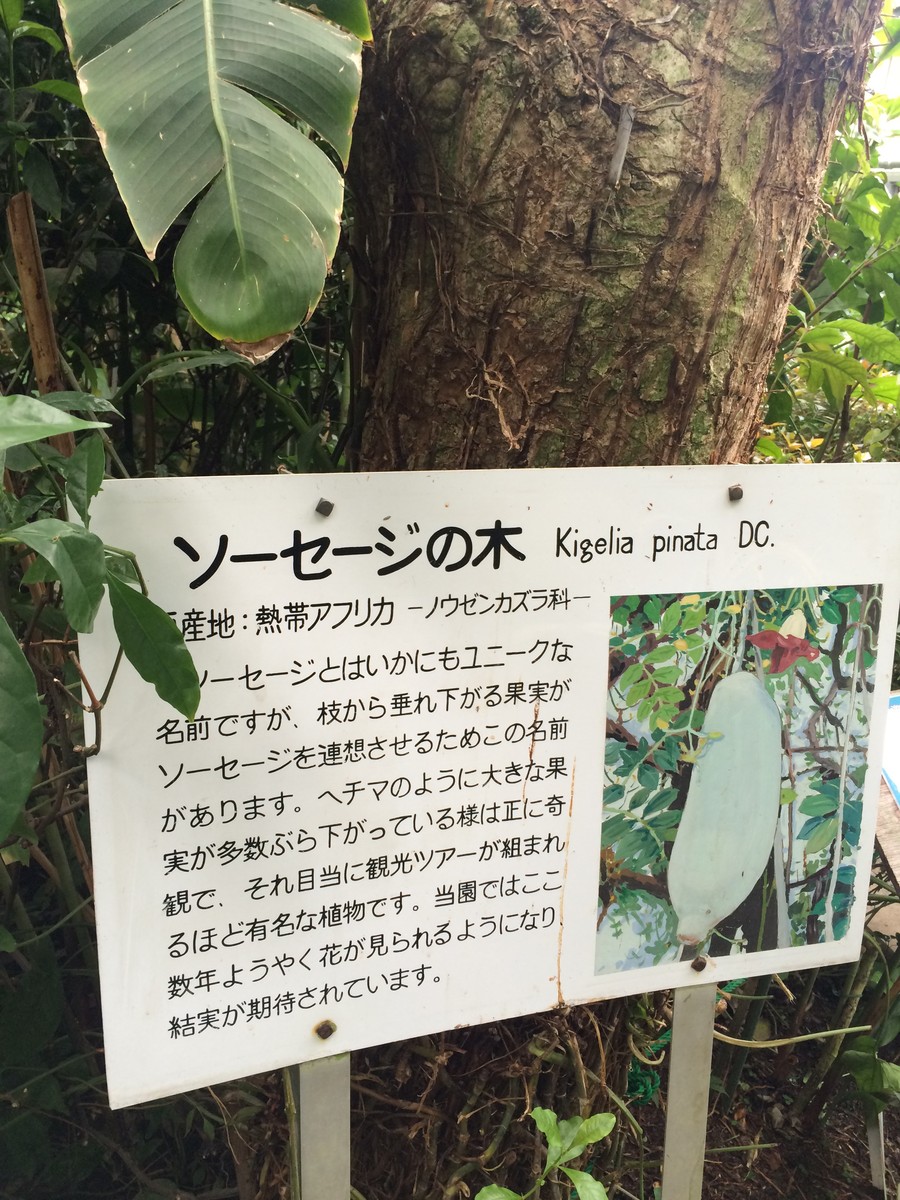 ソーセージの木 Kigelia pinata DC.
産地：熱帯アフリカ －ノウゼンカズラ科－
ソーセージとはいかにもユニークな
名前ですが、枝から垂れ下がる果実が
ソーセージを連想させるためこの名前
があります。ヘチマのように大きな果
実が多数ぶら下がっている様は正に奇
観で、それ目当に観光ツアーが組まれ
るほど有名な植物です。当園ではここ
数年ようやく花が見られるようになり
結実が期待されています。